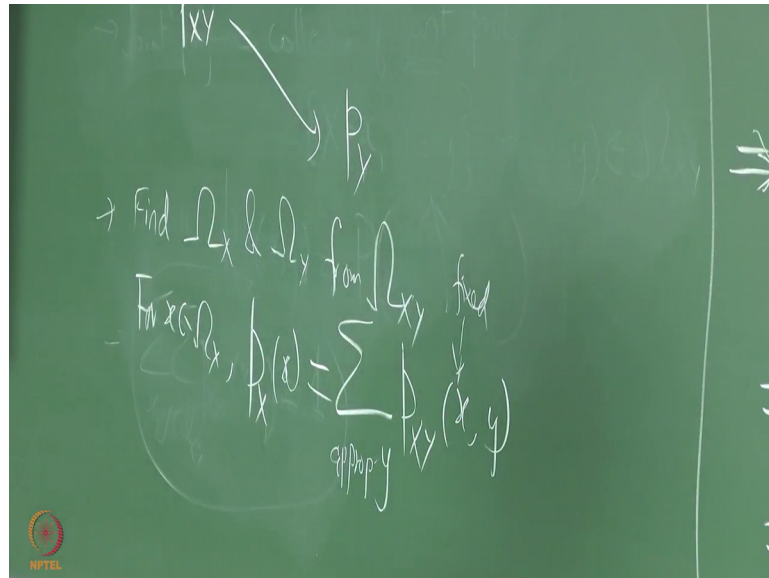 p_XY
p_Y
→ Find Ω_X & Ω_Y from Ω_XY
fixed
- For x∈Ω_X, p_X(x) = Σ p_XY(x, y)
approp. y
NPTEL